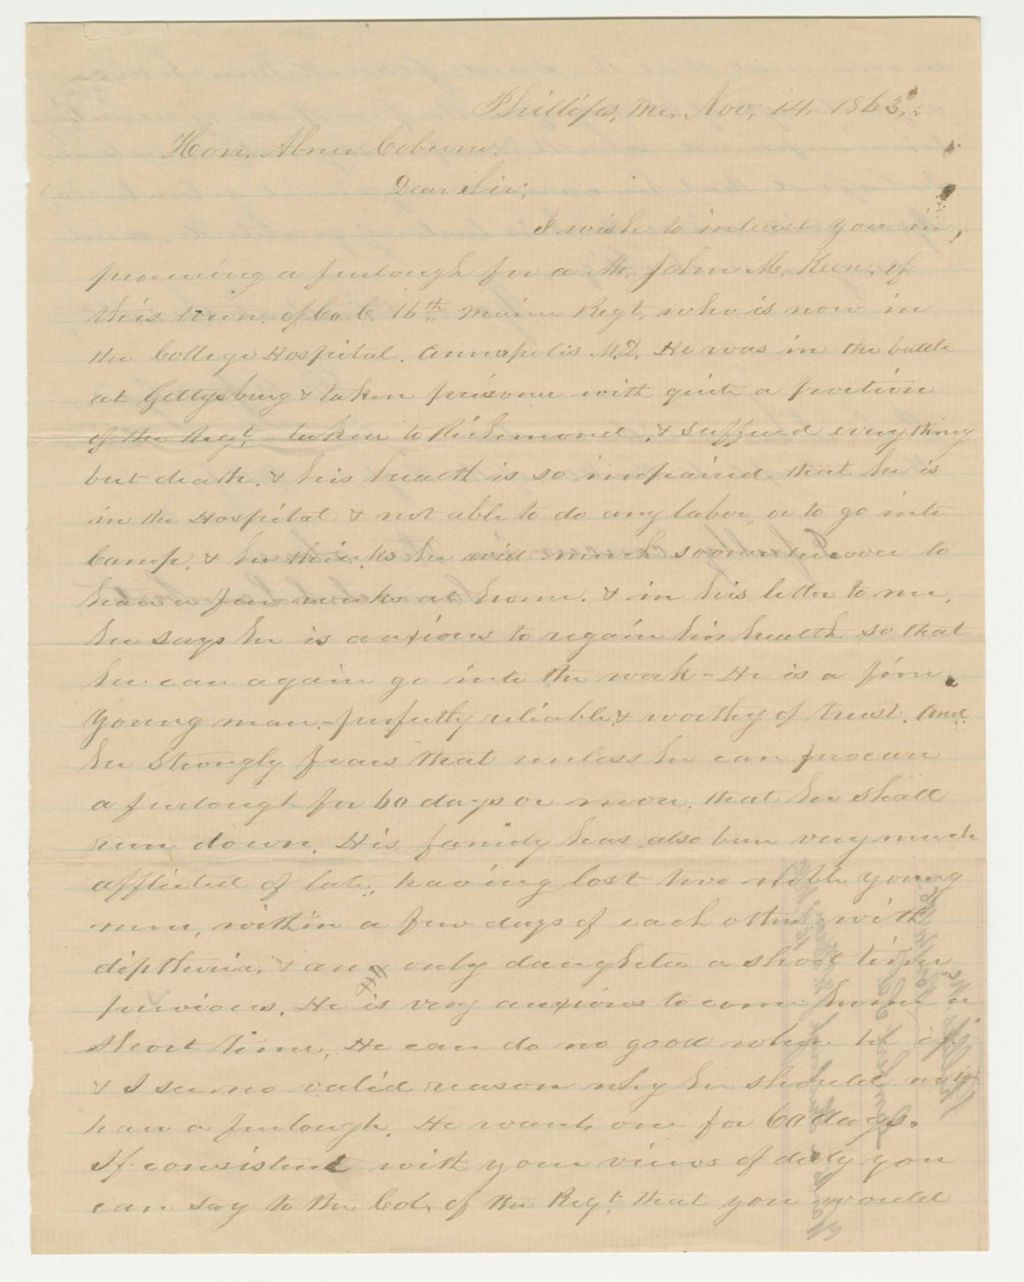 Phillips, Me. Nov. 14. 1863.
Hon. Abner Coburn.
Dear Sir;
I wish to interest you in,
procuring a furlough for a Mr. John M. Keen, of
this town. of Co. C. 16th Maine Regt, who is now in
the College Hospital. Annapolis M.D. He was in the battle
at Gettysburg & taken prisoner with quite a portion
of the Regt, taken to Richmond, & suffered everything
but death, & his health is so impaired, that he is
in the Hospital & not able to do any labor, or to go into
Camp, & he thinks he will much sooner recover to
have a few weeks at home. & in his letter to me,
he says he is anxious to regain his health so that
he can again go into the work - He is a fine
young man - perfectly reliable & worthy of trust. And
he strongly fears that unless he can procure
a furlough for 60 days or more. that he shall
run down. His family has also been very much
afflicted of late, having lost two noble young
men, within a few days of each other with
diptheria, & an only daughter a short time
previous. He is very anxious to come home a
short time, He can do no good where he is
& I see no valid reason why he should not
have a furlough. He wants one for 60 days.
If consistent with your views of duty you
can say to the Col. of the Regt. that you would